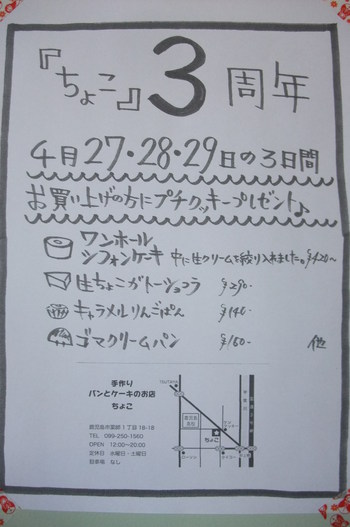 『ちょこ』3周年
4月27・28・29日の3日間
お買い上げの方にプチクッキープレゼント♪
ワンホール
シフォンケーキ 中に生クリームを絞り入れました。
生ちょこガトーショコラ ¥290-
キャラメルりんごぱん ¥140-
ゴマクリームパン ¥160- 他
手作り
パンとケーキのお店
ちょこ
TEL 099-250-1560
OPEN 12:00〜20:00
定休日 水曜日・土曜日
駐車場 なし
ちょこ